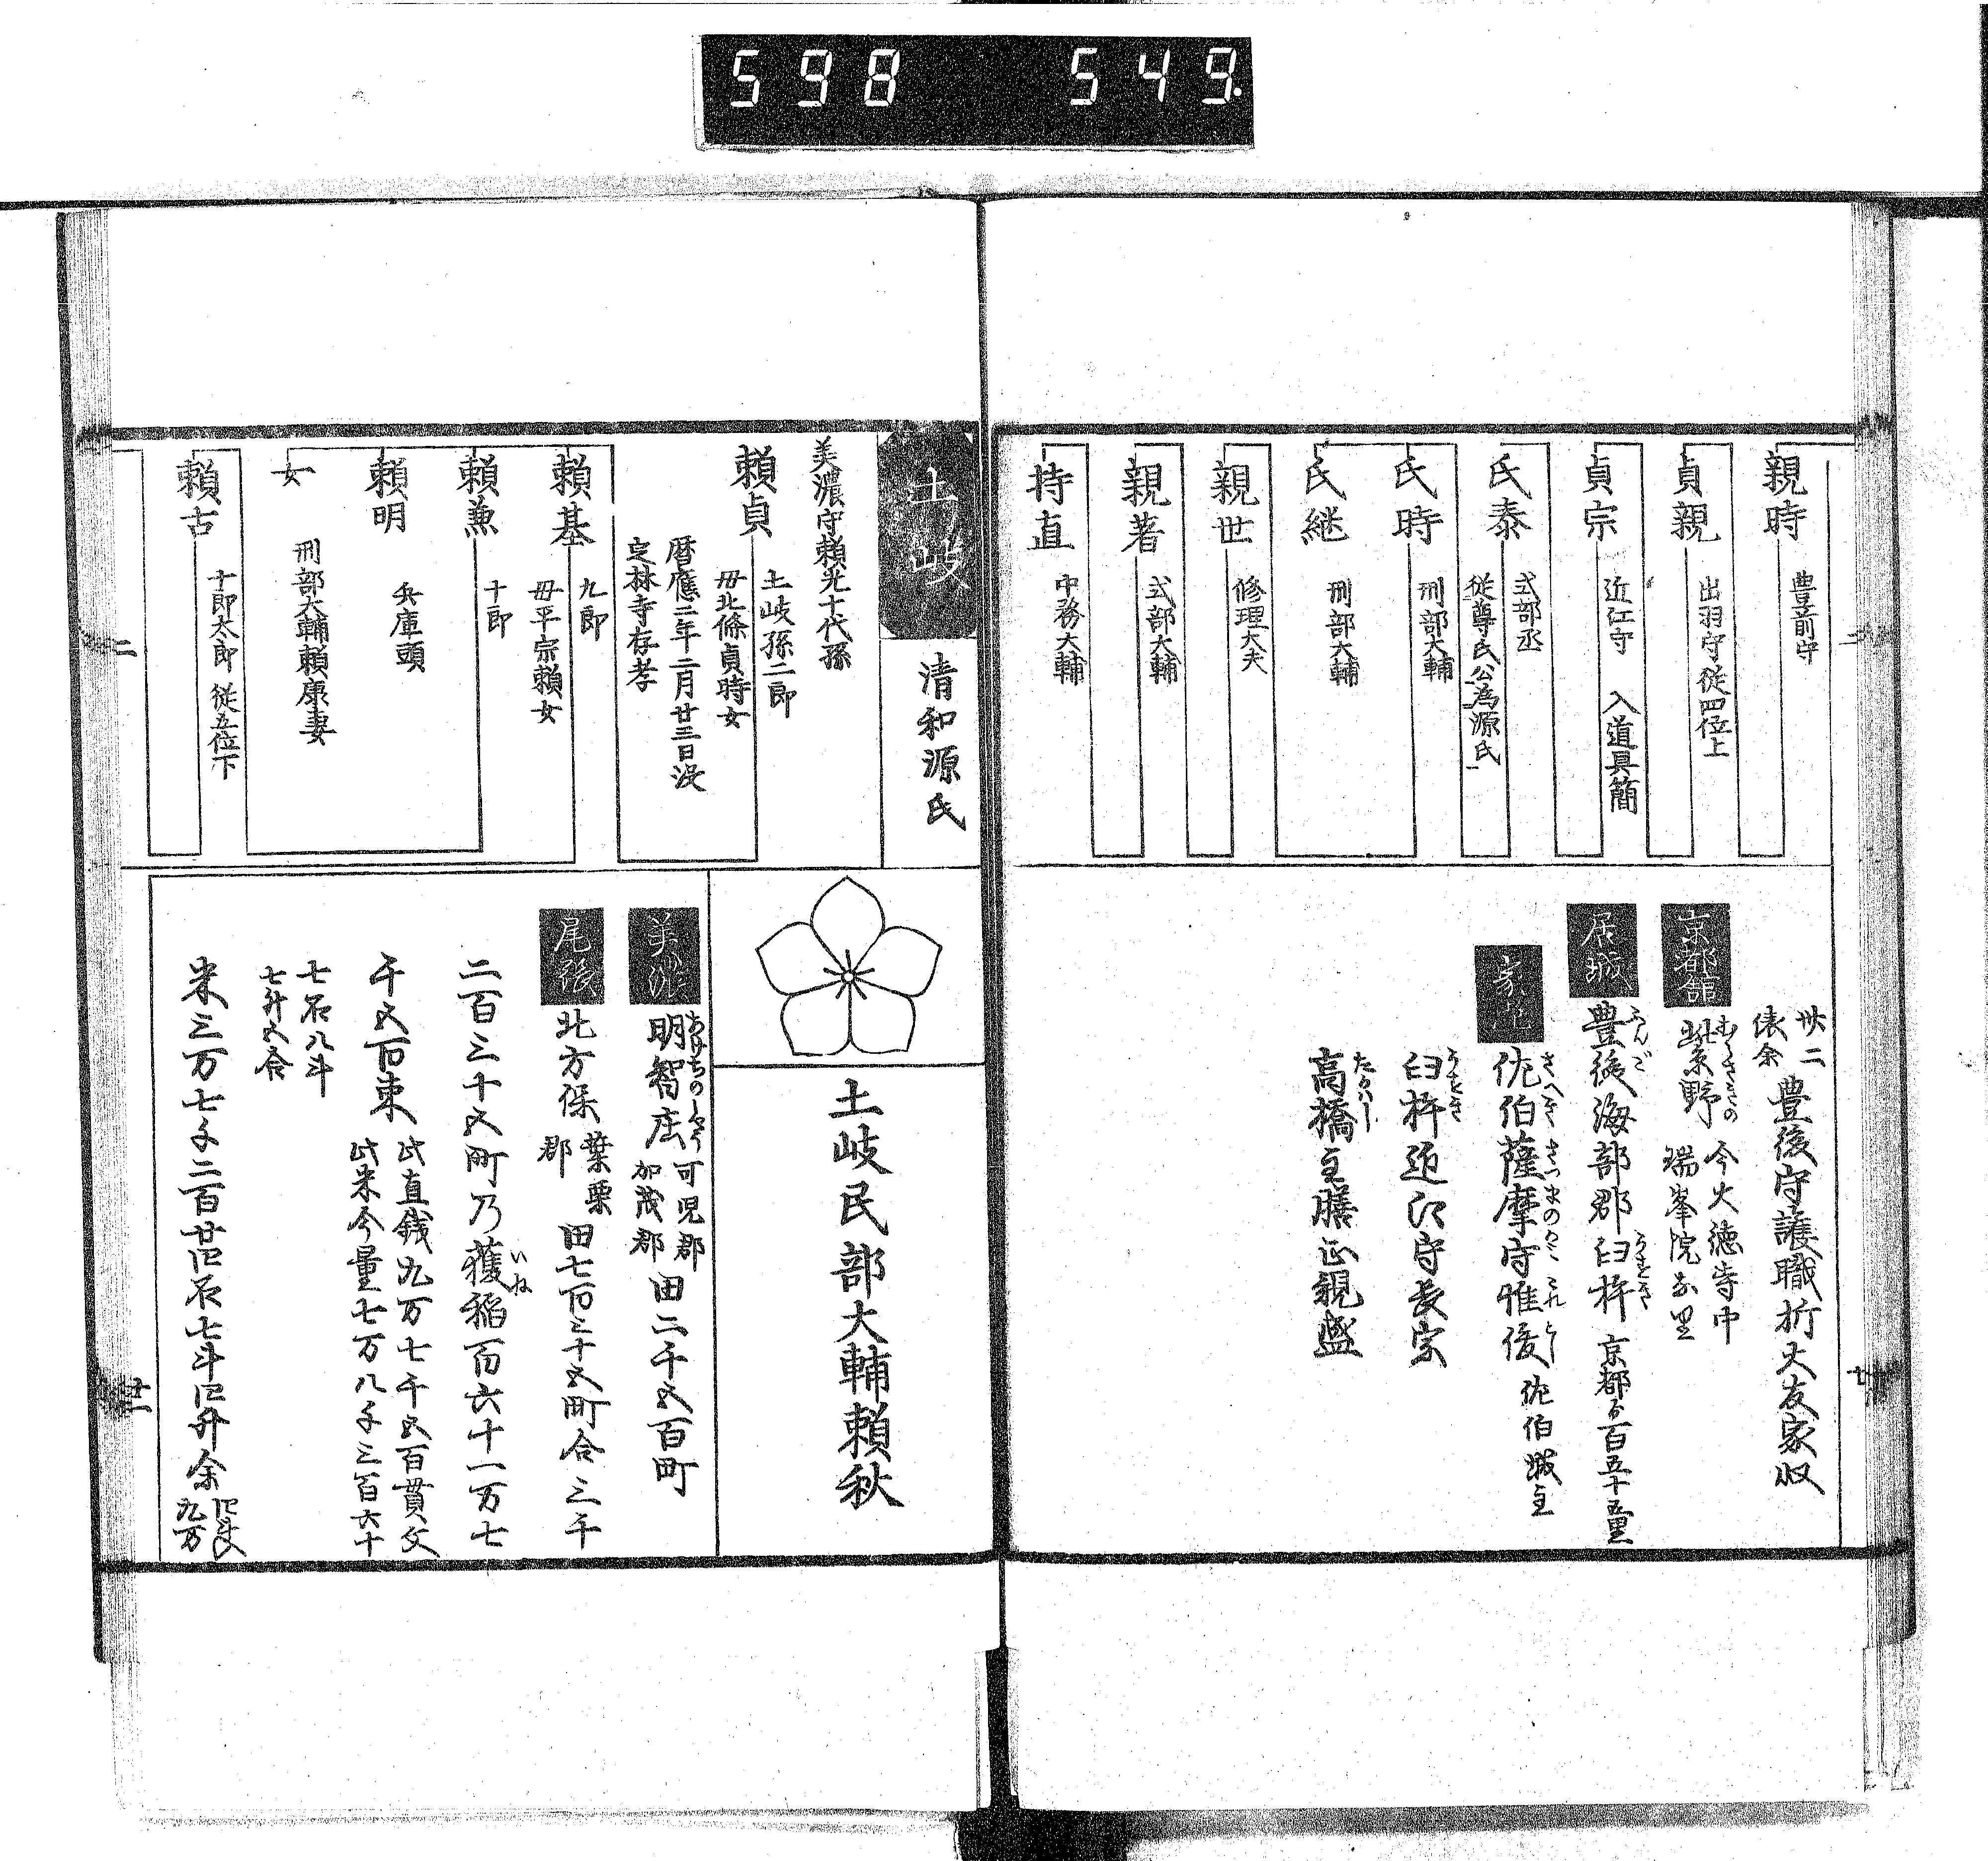 598 549
親時
豊前守
貞親
出羽守従四位上
貞宗
近江守 入道具簡
氏泰
式部丞
従尊氏公為源氏
氏時
刑部大輔
氏継
刑部大輔
親世
修理大夫
親著
式部大輔
持直
中務大輔
卅二
俵余
豊後守護職折大友家収
京都舘
紫野
むらさきの
今大徳寺中
瑞峯院
居城
豊後海部郡臼杵
ぶんご
うすき
京都百五十五里
佐伯薩摩守惟後
さへき さつまのかみ これ
佐伯城主
臼杵近江守長宗
うすき
高橋主膳正親盛
土岐
清和源氏
美濃守頼光十代孫
頼貞
土岐孫二郎
毋北條貞時女
暦應二年二月廿三日没
定林寺存孝
頼基
九郎
毋平宗頼女
頼兼
十郎
頼明
兵庫頭
女
刑部大輔頼康妻
頼古
十郎太郎 従五位下
土岐民部大輔頼秋
美濃
明智庄
可児郡
加茂郡
田二千五百町
尾張
北方保
葉栗
郡
田七百三十五町合三千
二百三十五町乃獲稲百六十一万七
いね
千五百束
此直銭九万七千五百貫文
此米今量七万八千三百六十
七石八斗
七升五合
米三万七千二百廿四石七斗四升余
九万